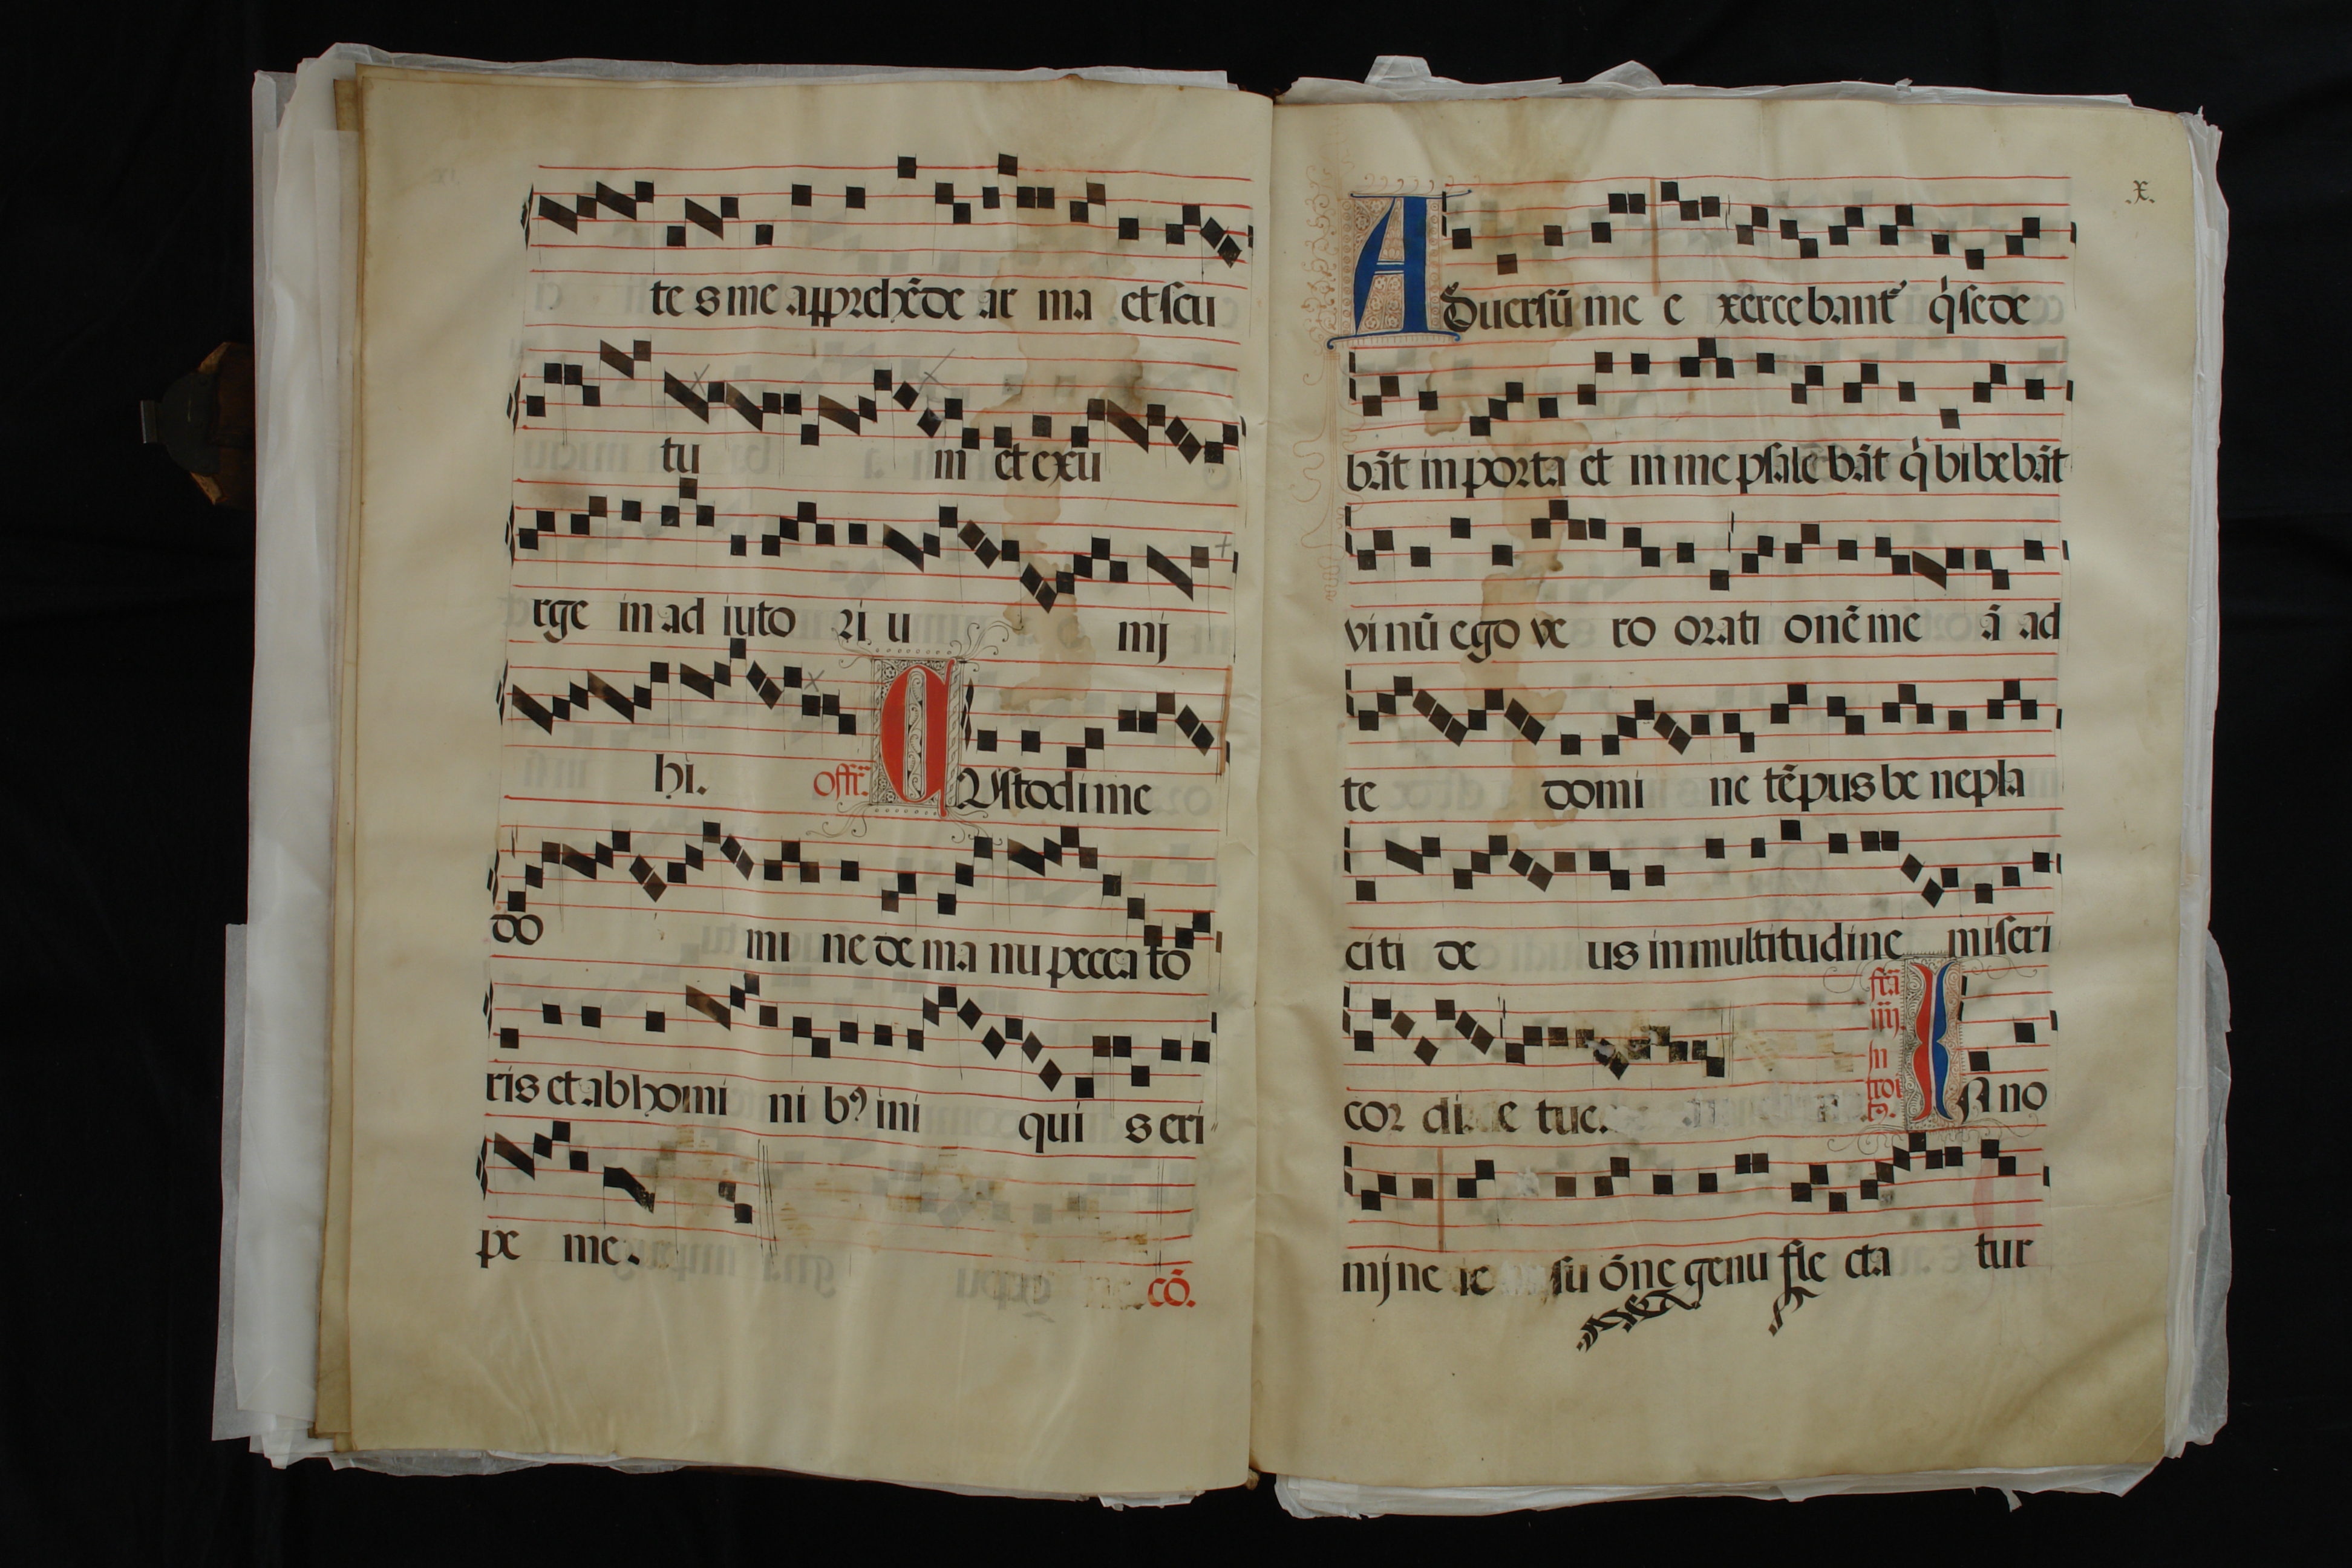 te s me apprehẽde ar ma et scu
tu m et exu
rge in ad iuto ri u mj
hi. offr̃. CUstodi me
do mi ne de ma nu pecca to
ris et ab homi ni bꝰ ini qui s eri
pe me.
cõ.
x.
ADuersũ me e xercebant q̇ sede
bãt in porta et in me psale bãt q̇ bibebãt
vi nũ ego ve ro orati onẽ me ã ad
te domi ne tẽpus be nepla
citi de us in multitudine miseri
cor di e tue. fr̃a iiij. In troi tꝰ. IN no
mj ne ie su õne genu fle cta tur